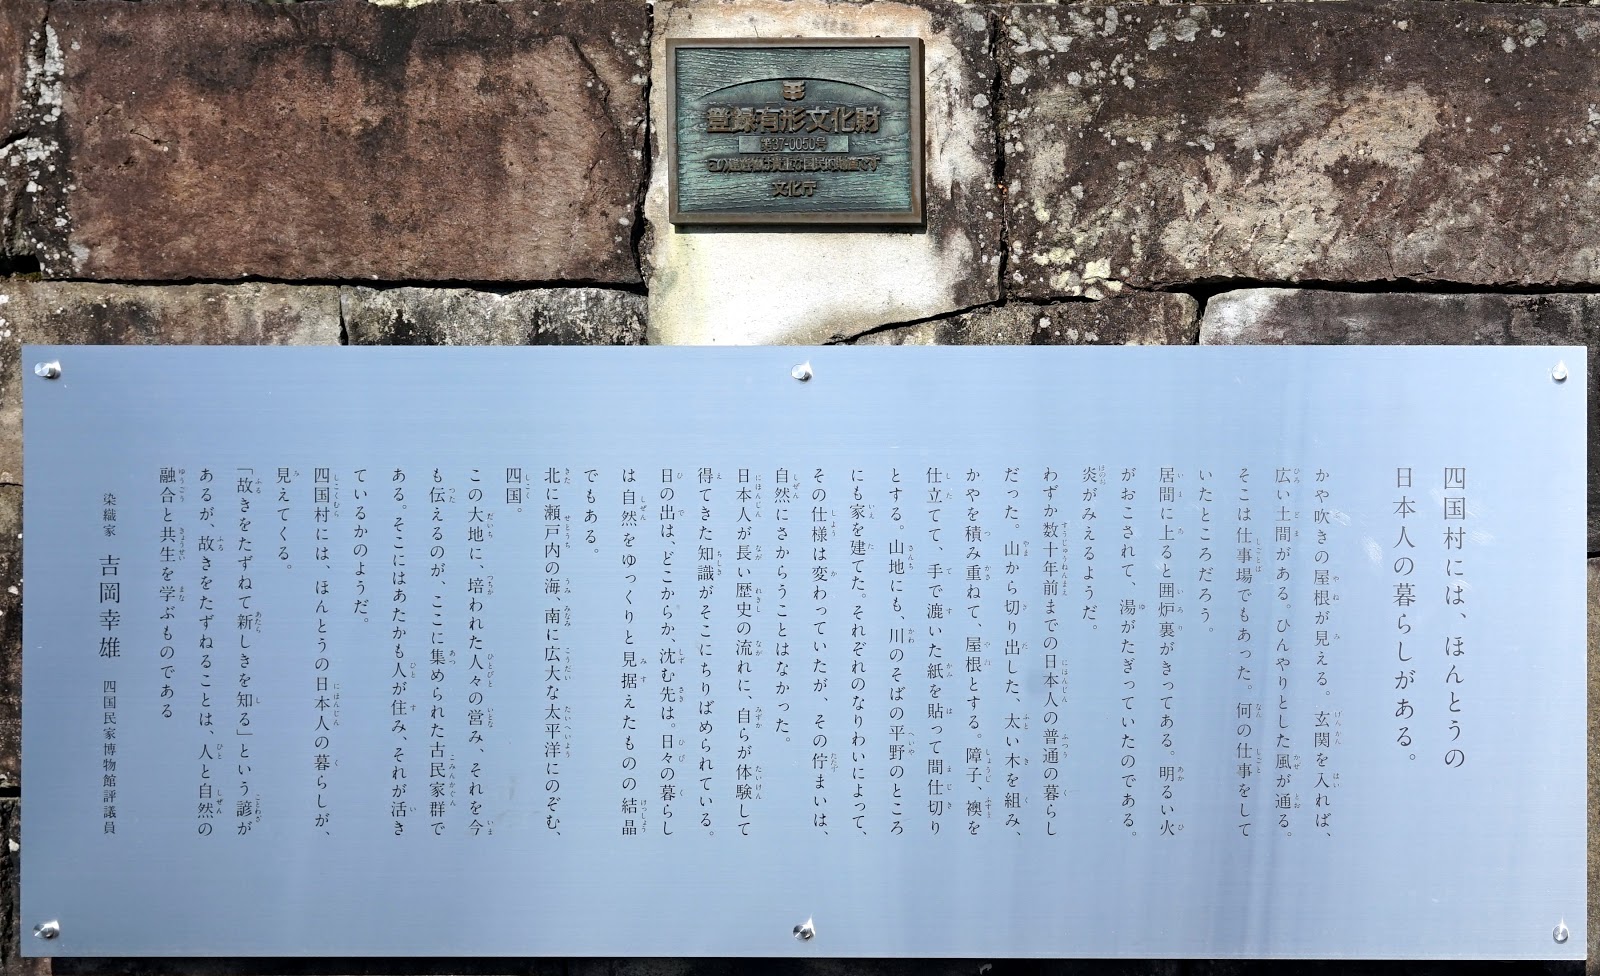 登録有形文化財
第37-0050号
この建造物は貴重な国民的財産です
文化庁
四国村には、ほんとうの
日本人の暮らしがある。
かや吹きの屋根が見える。玄関を入れば、
広い土間がある。ひんやりとした風が通る。
そこは仕事場でもあった。何の仕事をして
いたところだろう。
居間に上ると囲炉裏がきってある。明るい火
がおこされて、湯がたぎっていたのである。
炎がみえるようだ。
わずか数十年前までの日本人の普通の暮らし
だった。山から切り出した、太い木を組み、
かやを積み重ねて、屋根とする。障子、襖を
仕立てて、手で漉いた紙を貼って間仕切り
とする。山地にも、川のそばの平野のところ
にも家を建てた。それぞれのなりわいによって、
その仕様は変わっていたが、その佇まいは、
自然にさからうことはなかった。
日本人が長い歴史の流れに、自らが体験して
得てきた知識がそこにちりばめられている。
日の出は、どこからか、沈む先は。日々の暮らし
は自然をゆっくりと見据えたものの結晶
でもある。
北に瀬戸内の海、南に広大な太平洋にのぞむ、
四国。
この大地に、培われた人々の営み、それを今
も伝えるのが、ここに集められた古民家群で
ある。そこにはあたかも人が住み、それが活き
ているかのようだ。
四国村には、ほんとうの日本人の暮らしが、
見えてくる。
「故きをたずねて新しきを知る」という諺が
あるが、故きをたずねることは、人と自然の
融合と共生を学ぶものである
染織家 吉岡幸雄 四国民家博物館評議員